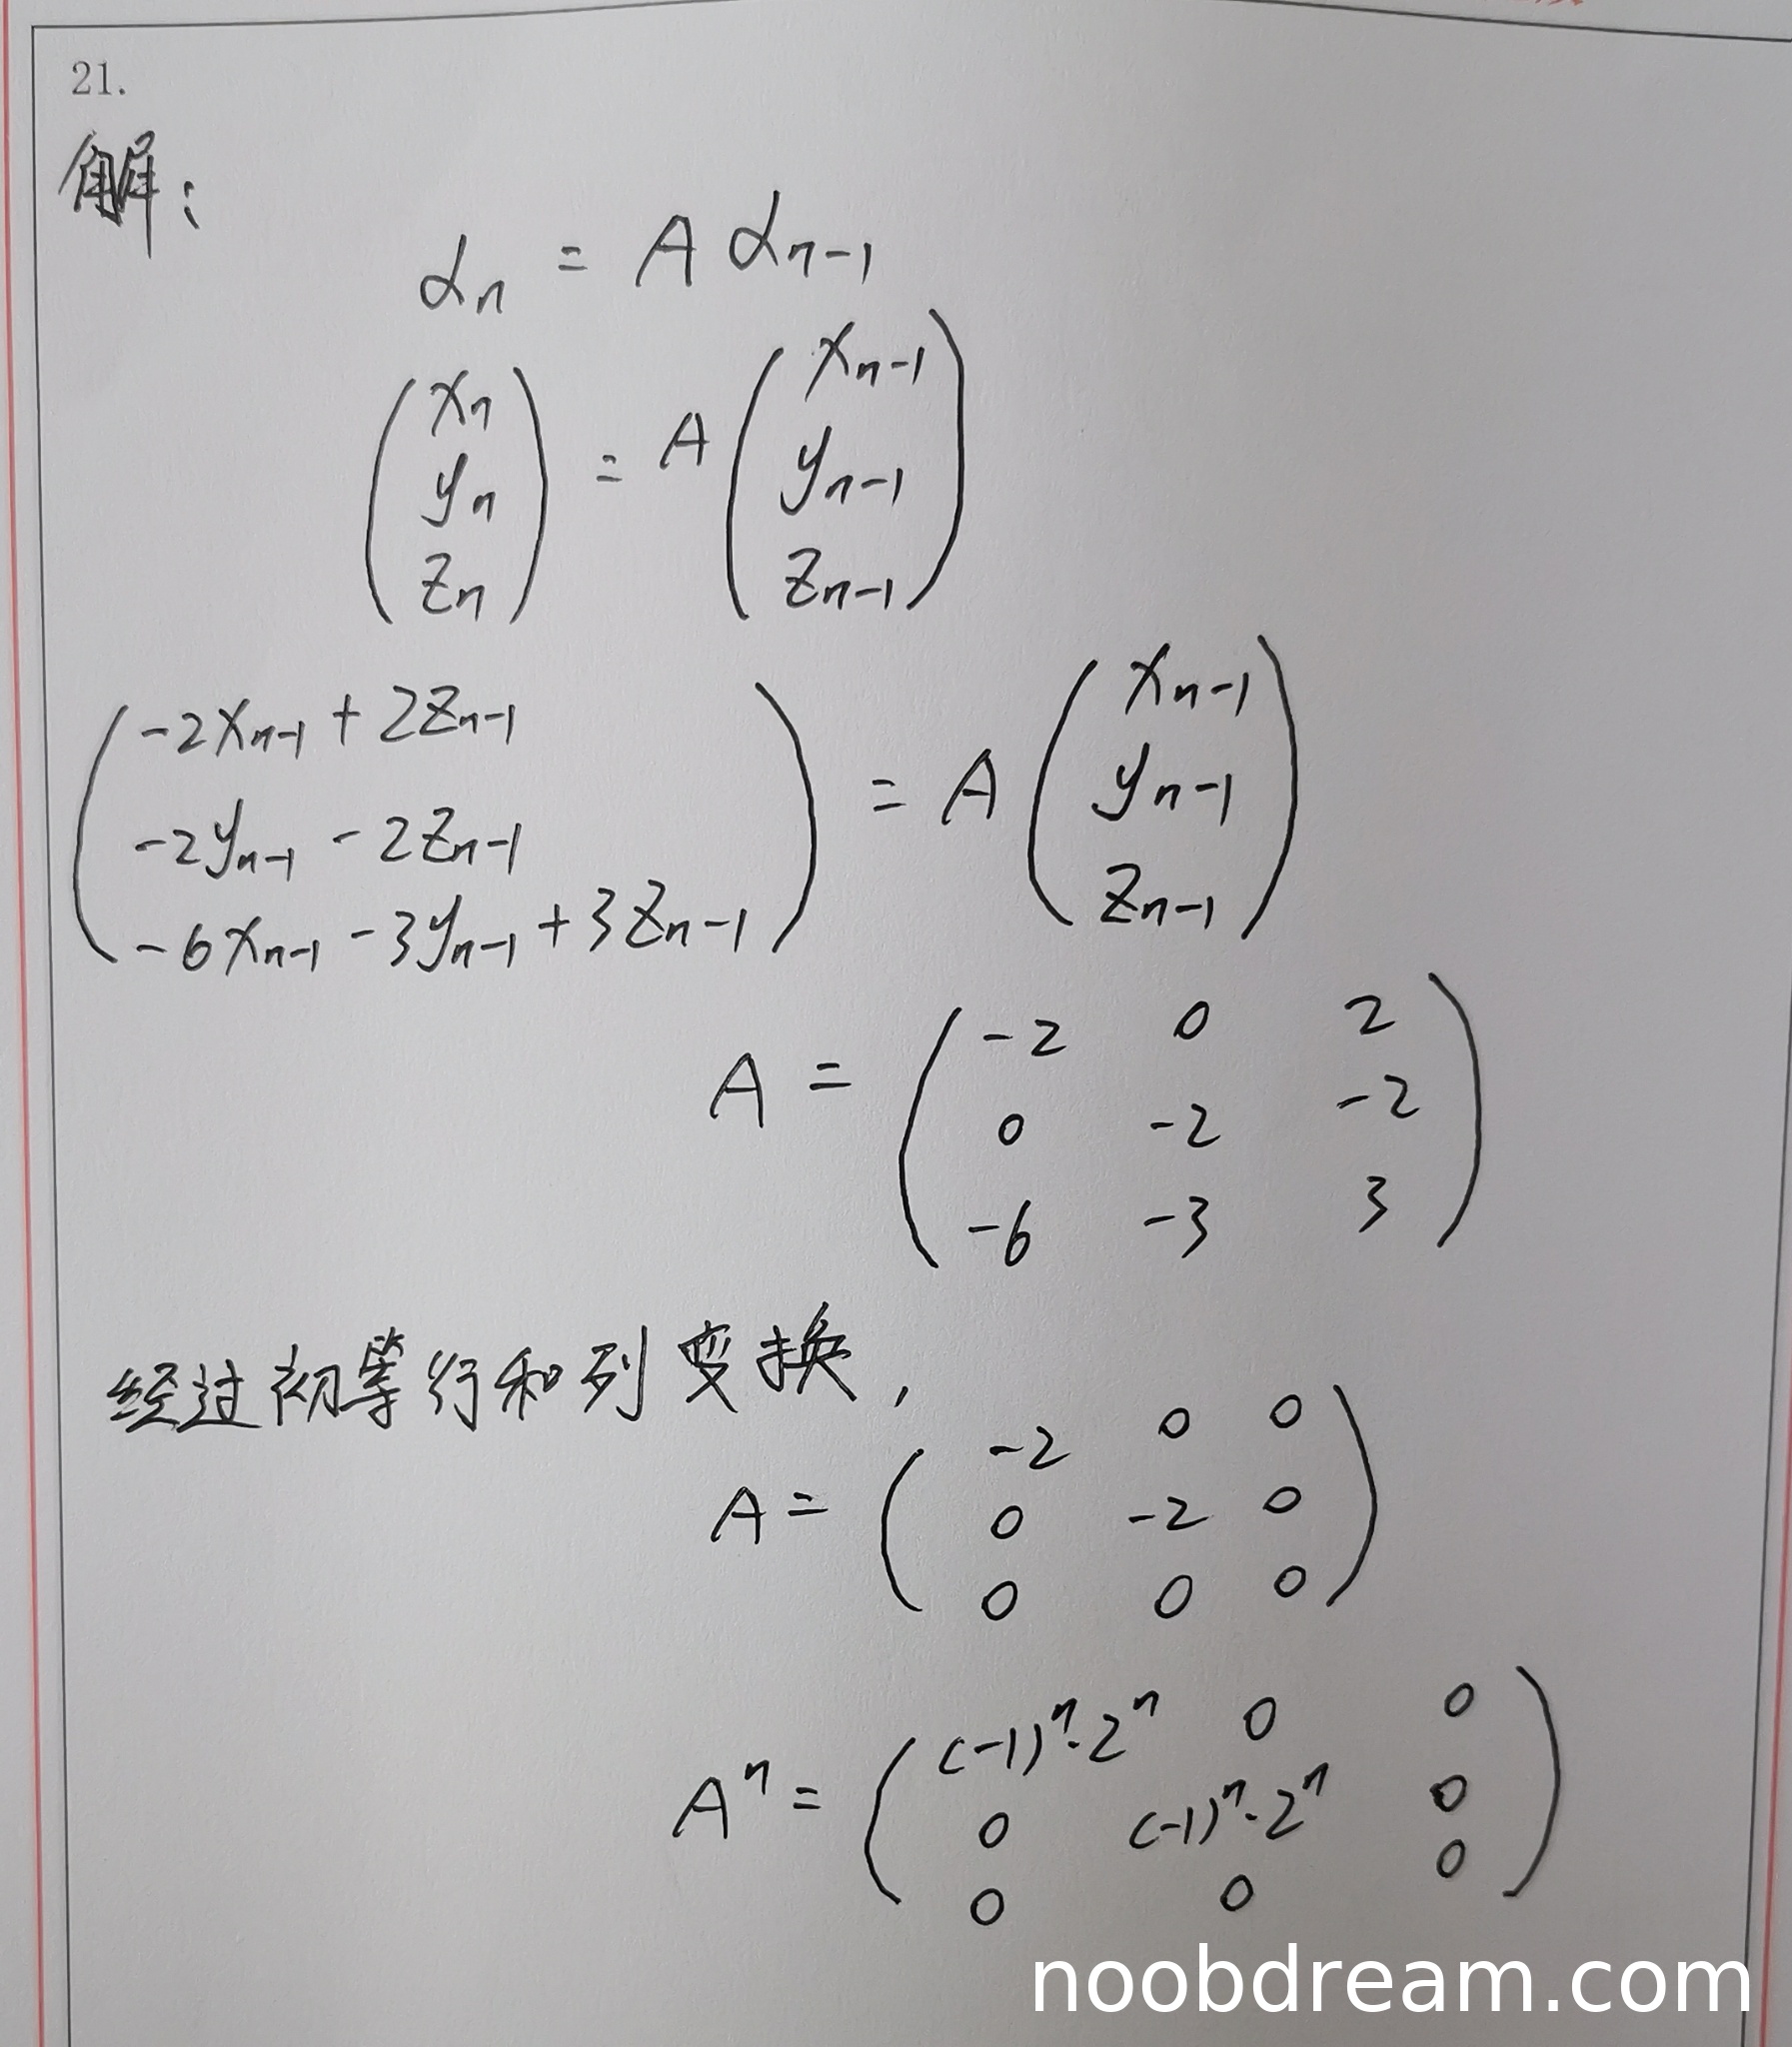 21.
解:
αn = A αn-1
(xn yn zn) = A (xn-1 yn-1 zn-1)
(-2xn-1 + 2zn-1
-2yn-1 - 2zn-1
-6xn-1 - 3yn-1 + 3zn-1) = A (xn-1 yn-1 zn-1)
A = (-2 0 2
0 -2 -2
-6 -3 3)
经过初等行和列变换,
A = (-2 0 0
0 -2 0
0 0 0)
A^n = ((-1)^n·2^n 0 0
0 (-1)^n·2^n 0
0 0 0)
noobdream.com